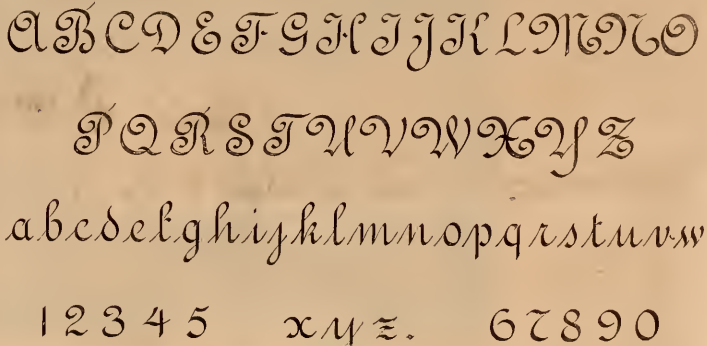 ABCDEFGHIJKLMNO
PQRSTUVWXYZ
abcdefghijklmnopqrstuvw
12345 xyz. 67890